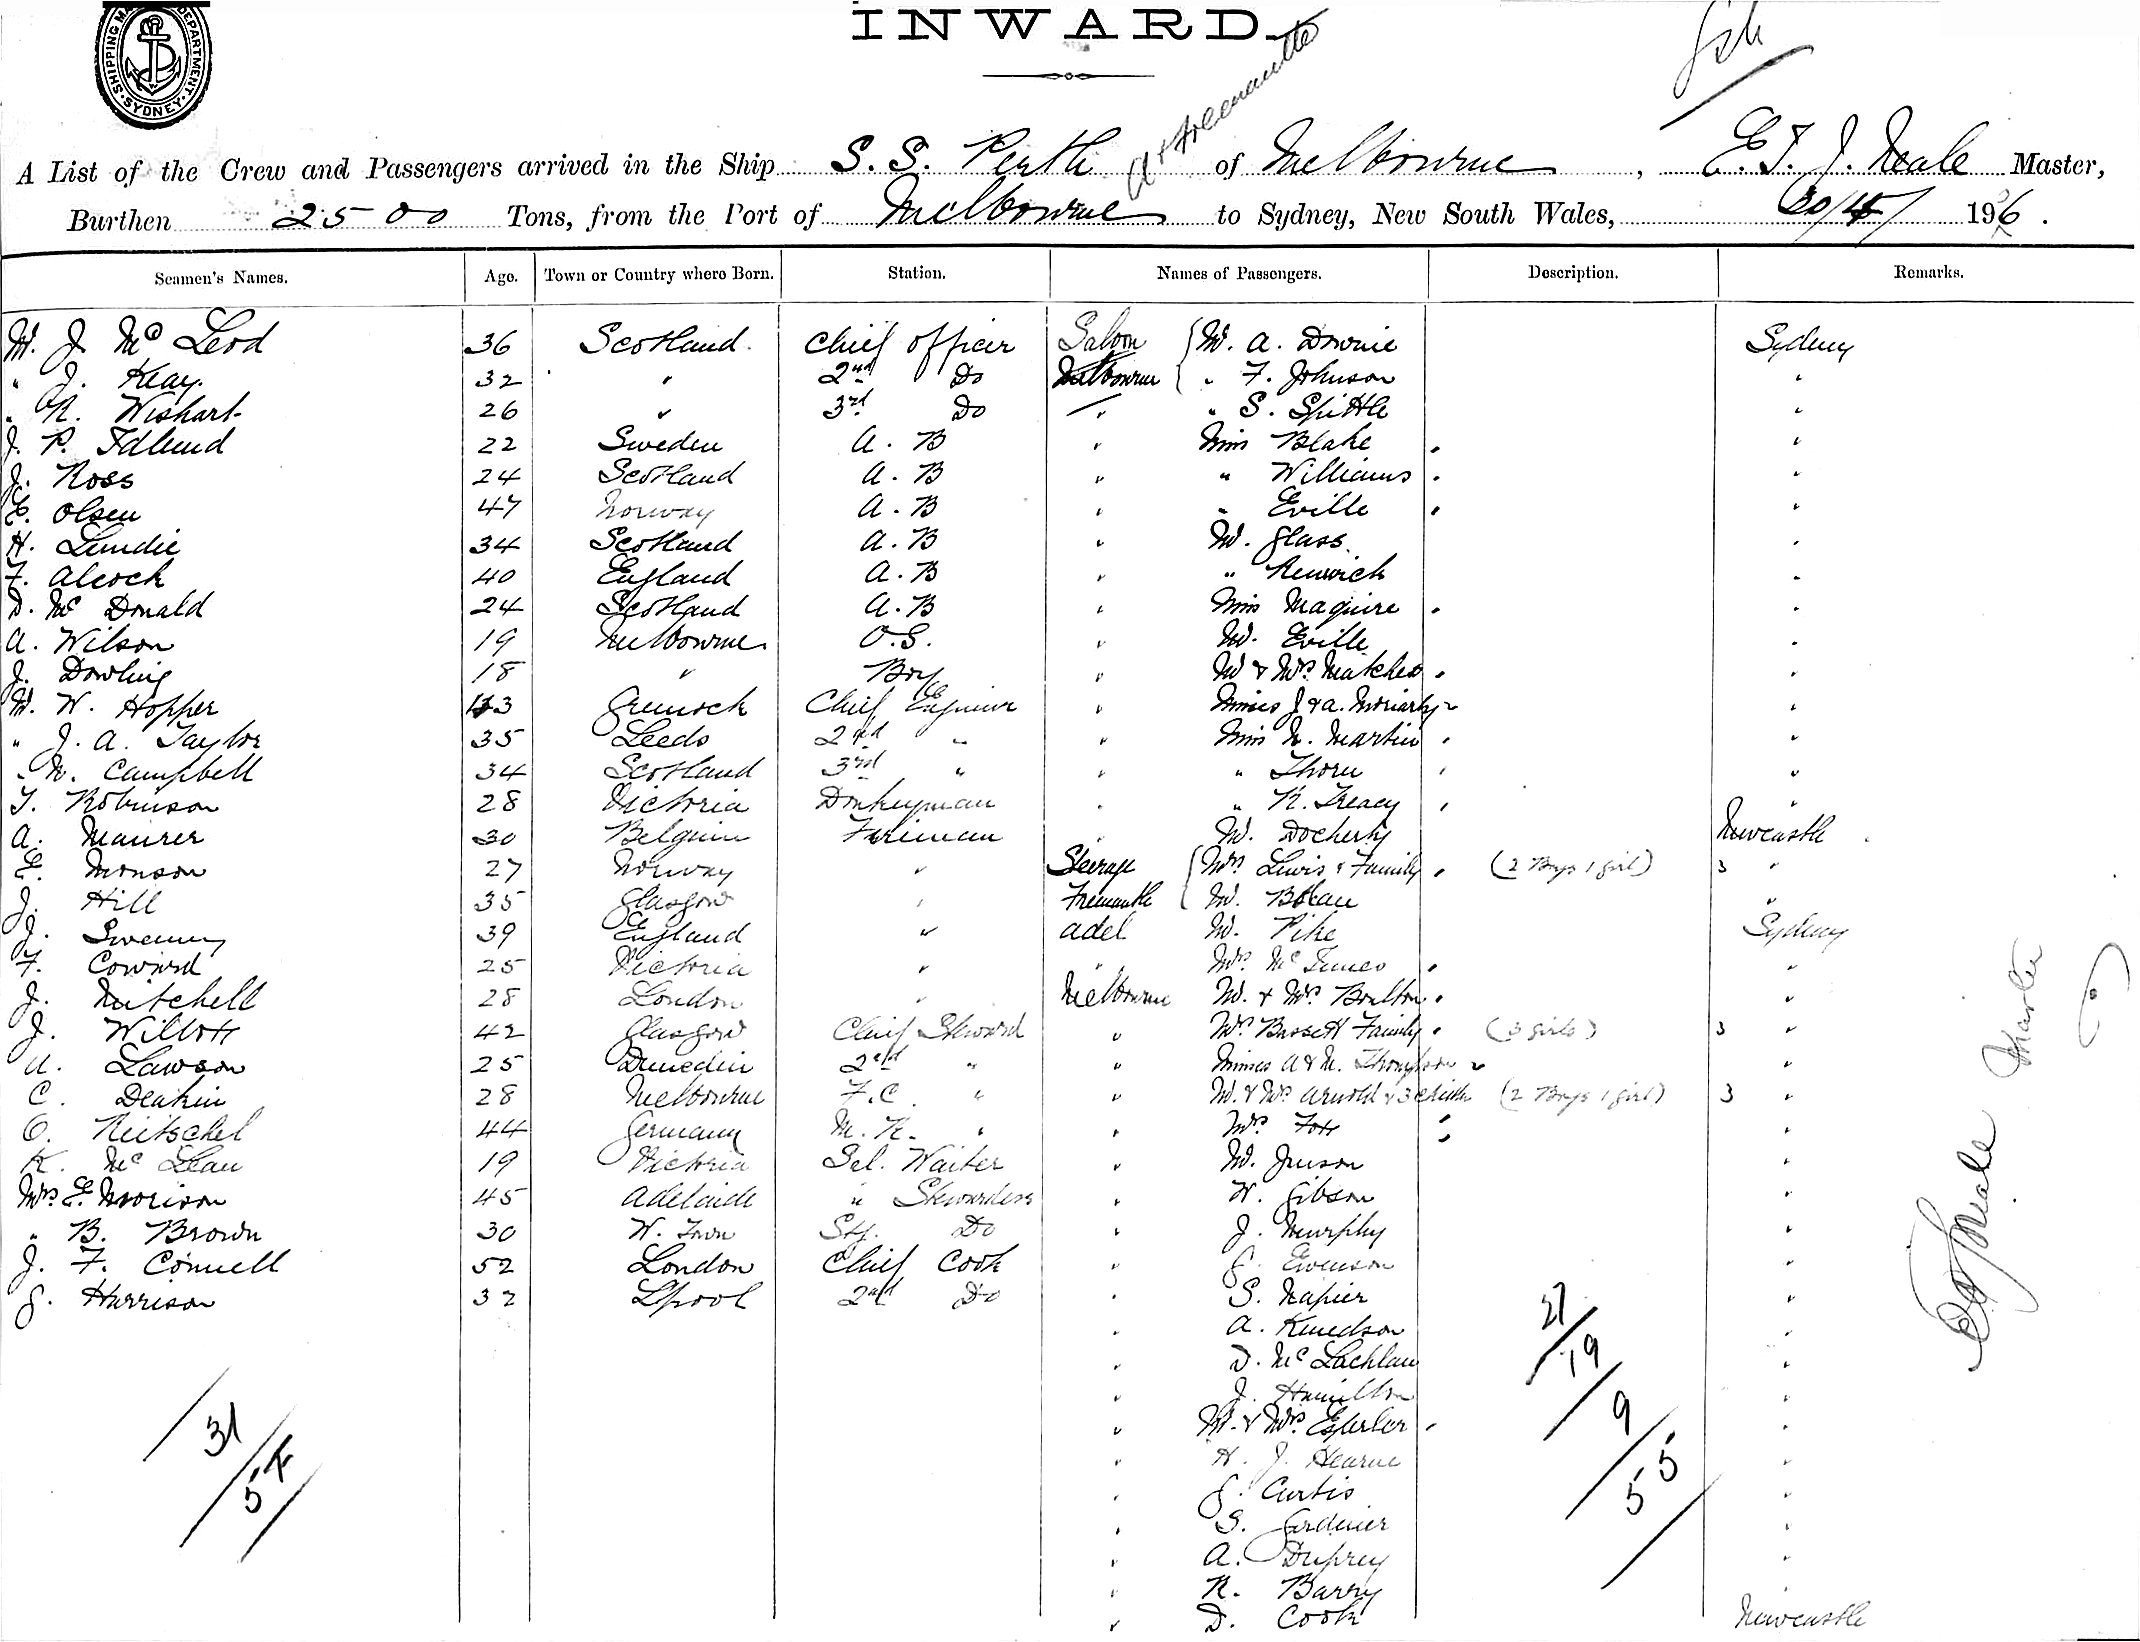 SHIPPING MA DEPARTMENT SYDNEY
INWARD
& Freemantle
A List of the Crew and Passengers arrived in the Ship S. S. Perth of Melbourne, E. T. J. Neale Master,
Burthen 2500 Tons, from the Port of Melbourne to Sydney, New South Wales, 20/4/ 1906.
Seamen's Names. Age. Town or Country where Born. Station. Names of Passengers. Description. Remarks.
M. J. Mc Leod 36 Scotland. Chief Officer Saloon { Mr. A. Downie Sydney
" J. Keay. 32 " 2nd Do Melbourne { " F. Johnson "
" R. Wishart 26 " 3rd Do " " S. Spittle "
J. P. Idlund 22 Sweden A. B " Miss Blake "
J. Ross 24 Scotland A. B " " Williams "
E. Olsen 47 Norway A. B " " Eville "
H. Lundie 34 Scotland A. B " Mr. Glass "
F. Alcock 40 England A. B " " Renwick "
D. Mc Donald 24 Scotland A. B " Miss Maguire "
A. Wilson 19 Melbourne O.S. " Mr. Eville "
J. Dowling 18 " Boy " Mr & Mrs Matches "
M. W. Hopper 43 Greenock Chief Engineer " Misses J & A. Moriarty "
" J. A. Taylor 35 Leeds 2nd " " Miss N. Martin "
" N. Campbell 34 Scotland 3rd " " " Thorn "
T. Robinson 28 Victoria Donkeyman " " K. Treacy "
A. Maurer 30 Belguim Fireman " Mr. Docherty Newcastle
E. Monson 27 Norway " Steerage { Mrs Lewis & Family (2 Boys 1 girl) 3 "
J. Hill 35 Glasgow " Fremantle { Mr. "
J. Sweeney 39 England " Adel Mr. Pike Sydney
F. Coward 25 Victoria " " Mrs. Mc Innes "
J. Mitchell 28 London " Melbourne Mr. & Mrs Boulton "
J. Willott 42 Glasgow Chief Steward " Mrs Bassett Family (3 girls) 3 "
A. Lawson 25 Dunedin 2nd " " Misses A & M. Thompson "
C. Deakin 28 Melbourne F.C. " " Mr. & Mrs Arnold & 3 Childn (2 Boys 1 girl) 3 "
O. Neitschel 44 Germany M. R. " " Mrs Fox "
K. Mc Lean 19 Victoria Sal. Waiter " Mr. Juson "
Mrs E. Morison 45 Adelaide " Stewardess " W. Gibson "
" B. Brown 30 W. Town Stg. Do " J. Murphy "
J. F. Connell 52 London Chief Cook " G. Evenson "
G. Harrison 32 Lpool 2nd Do " S. Napier "
" A. Knudson "
" D. Mc Lachlan "
" J. Hamilton "
" Mr. & Mrs. Esperler "
" H. J. Hearne "
" G. Curtis "
" S. Gardiner "
" A. Duprey "
" R. Barry "
" D. Cook Newcastle
31/54
27/19/9/55
E T J Neale Master